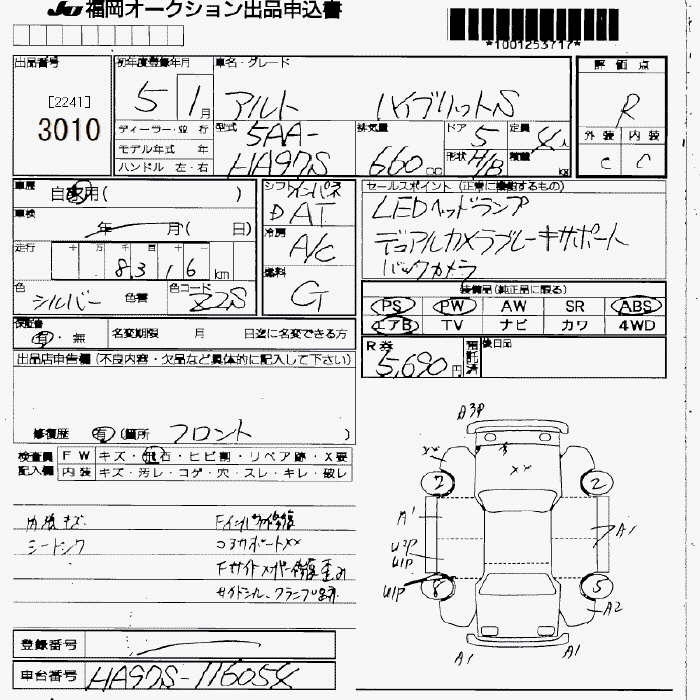 JU 福岡オークション出品申込書
*1001253717*
出品番号
[2241]
3010
初年度登録年月
5 1月
車名・グレード
アルト ハイブリットS
評価点
R
ディーラー・並行
モデル年式 年
ハンドル 左・右
型式
5AA-
HA97S
排気量
660cc
ドア 5
形状 H/B
定員 4人
積載 kg
外装 内装
C C
車歴
自家用( )
車検
年 月( 日)
走行
十 万 千 百 十
8 3 1 6 km
色
シルバー 色書
色コード
Z2S
シフト インパネ
D AT
冷房
A/C
燃料
G
セールスポイント(正常に機能するもの)
LEDヘッドランプ
デュアルカメラブレーキサポート
バックカメラ
装備品(純正品に限る)
PS PW AW SR ABS
エアB TV ナビ カワ 4WD
保証書
有・無
名変期限 月 日迄に名変できる方
R券
5,690円
預託済
後日品
出品店申告欄(不良内容・欠品など具体的に記入して下さい)
修復歴 有(箇所 フロント )
検査員
記入欄
FW キズ・飛石・ヒビ割・リペア跡・X要
内装 キズ・汚レ・コゲ・穴・スレ・キレ・破レ
内張キズ
シート
Fインパネ修復
コアサポートXX
Fサイドメンバー修復歪み
A3P
XX
XX
2
2
A1
A1
U2P
U1P
U1P
8
5
A2
A1
A1
登録番号
車台番号 HA97S-11605X